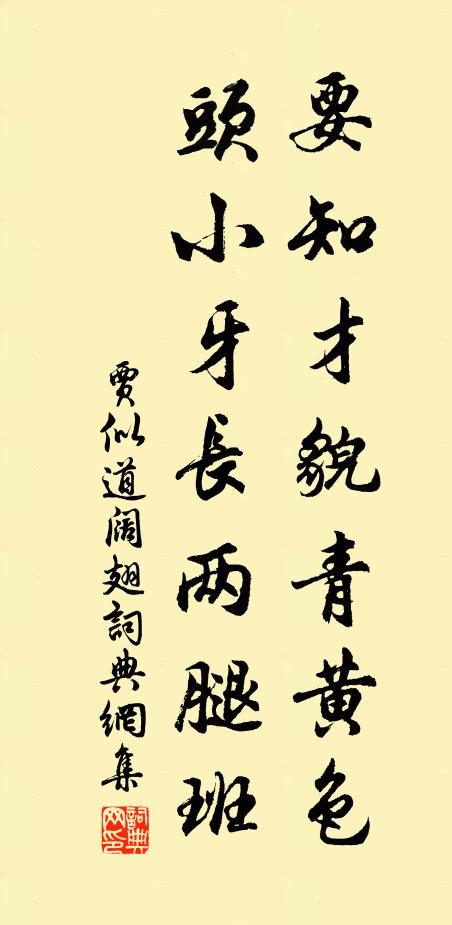 要知才貌青黃色
頭小牙長两腿班
賈似道阔翅詞典網集
詞典网印